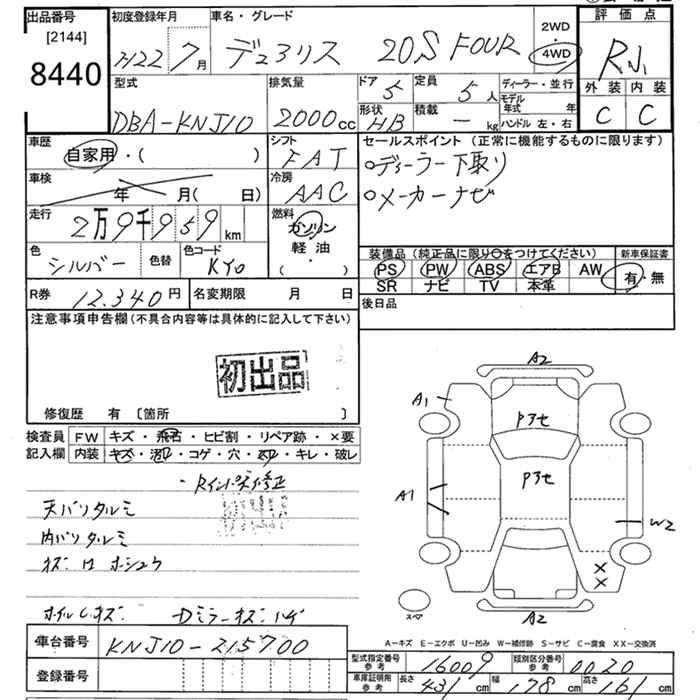 出品番号
[2144]
8440
初度登録年月
H22 7月
車名・グレード
デュアリス 20S FOUR
2WD
・
4WD
評価点
R
外装 内装
C C
型式
DBA-KNJ10
排気量
2000cc
ドア 5
定員 5人
形状 HB
積載 - kg
ディーラー・並行
モデル年式 年
ハンドル 左・右
車歴
自家用・( )
車検
年 月( 日)
走行
2万9千959km
色
シルバー
色替
色コード
KY0
シフト
FAT
冷房
AAC
燃料
ガソリン
軽油
( ・ )
セールスポイント(正常に機能するものに限ります)
○ディーラー下取り
○メーカーナビ
装備品(純正品に限り○をつけてください)
新車保証書
PS PW ABS エアB AW
SR ナビ TV 本革
有・無
R券 12.340円
名変期限 月 日
後日品
注意事項申告欄(不具合内容等は具体的に記入して下さい)
初出品
修復歴 有 [箇所 ]
検査員記入欄
FW キズ・飛石・ヒビ割・リペア跡・×要
内装 キズ・汚レ・コゲ・穴・スレ・キレ・破レ
・Rインパネ修正
天バリタルミ
内バリタルミ
キズ ロ ホシュウ
ホイルC.キズ Dミラーキズハゲ
A2
A1
Pアセ
Pアセ
A1
W2
×
×
スペア
A2
A-キズ E-エクボ U-凹み W-補修跡 S-サビ C-腐食 XX-交換済
車台番号
KNJ10-215700
登録番号
型式指定番号 参考 16009
類別区分番号 参考 0020
車庫証明用 参考
長さ 431cm
幅 178cm
高さ 161cm